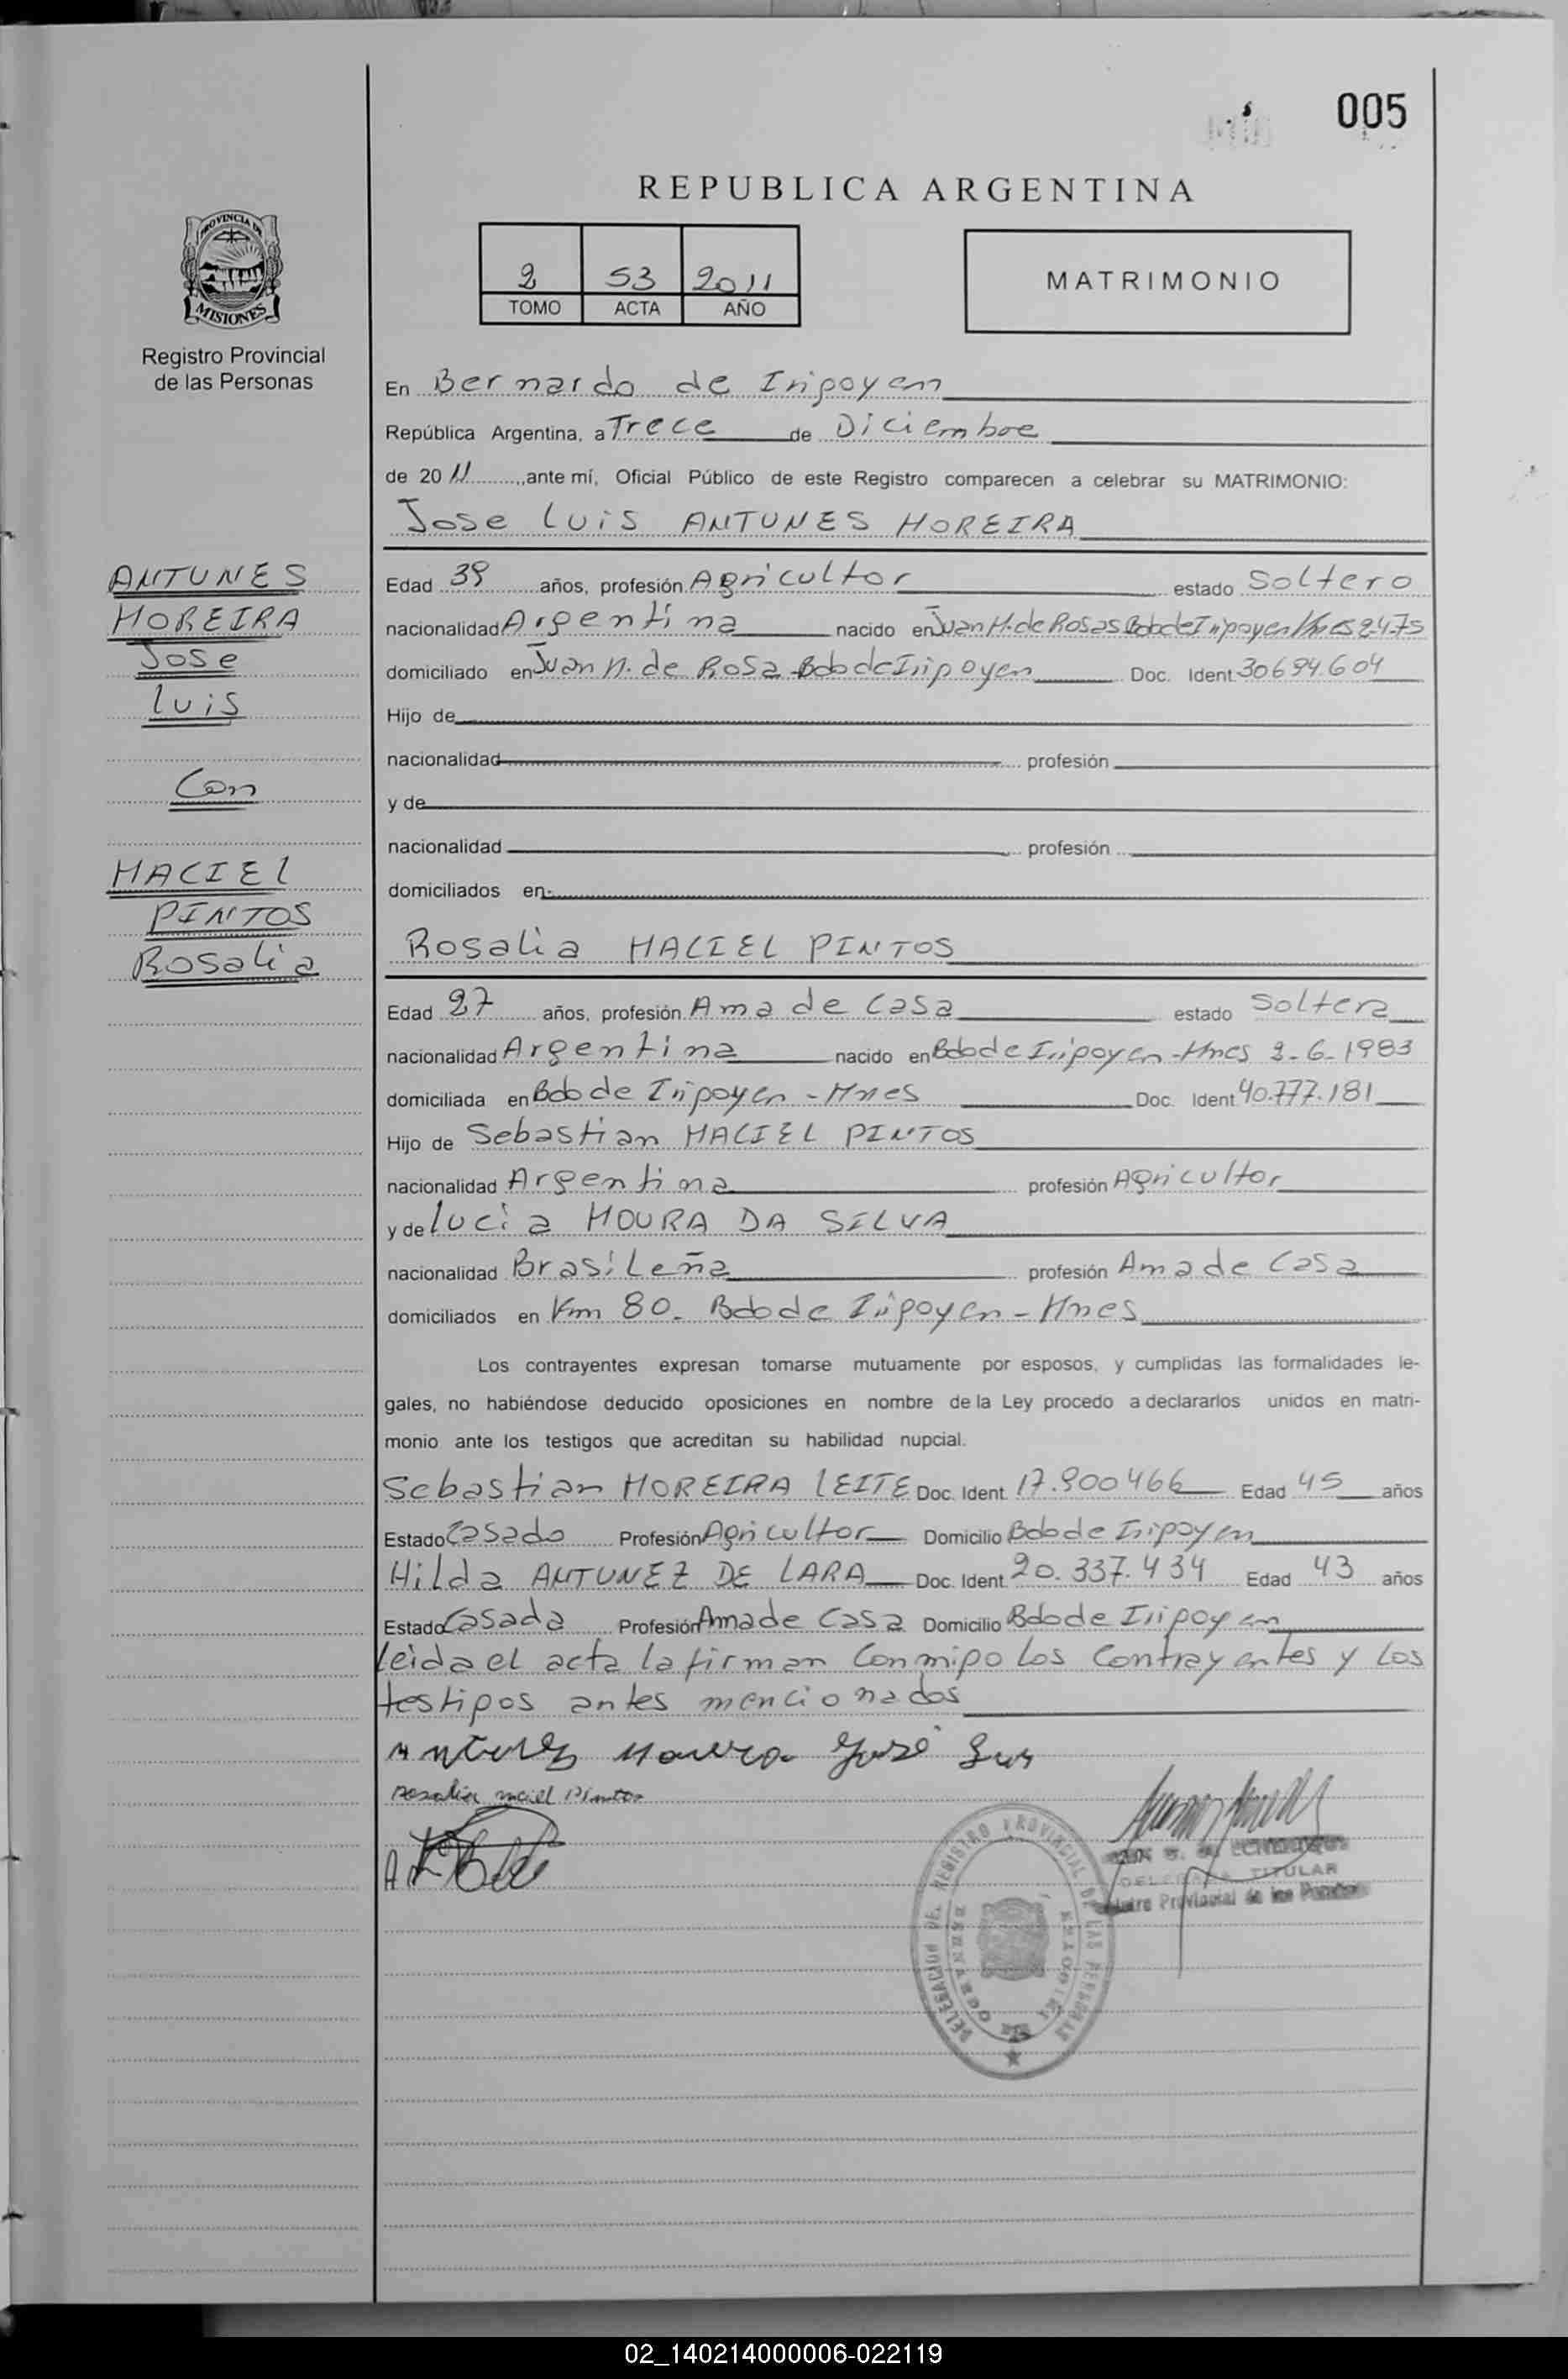 005
REPUBLICA ARGENTINA
2 53 2011
TOMO ACTA AÑO
MATRIMONIO
PROVINCIA DE
MISIONES
Registro Provincial
de las Personas
En Bernardo de Iripoyem
República Argentina, a Trece de Diciembre
de 20 11 ,ante mí, Oficial Público de este Registro comparecen a celebrar su MATRIMONIO:
Jose Luis ANTUNES MOREIRA
ANTUNES
MOREIRA
Jose
Luis
Con
MACIEL
PINTOS
Rosalia
Edad 39 años, profesión Agricultor estado Soltero
nacionalidad Argentina nacido en Juan M. de Rosas Bdo de Iripoyen
domiciliado en Juan M. de Rosa Bdo de Iripoyen Doc. Ident. 30694.604
Hijo de
nacionalidad profesión
y de
nacionalidad profesión
domiciliados en
Rosalia MACIEL PINTOS
Edad 27 años, profesión Ama de Casa estado Soltera
nacionalidad Argentina nacido en Bdo de Iripoyen - Mnes 2-6-1983
domiciliada en Bdo de Iripoyen - Mnes Doc. Ident. 40.777.181
Hijo de Sebastian MACIEL PINTOS
nacionalidad Argentina profesión Agricultor
y de Lucia MOURA DA SILVA
nacionalidad Brasileña profesión Ama de Casa
domiciliados en Km 80 - Bdo de Iripoyen - Mnes
Los contrayentes expresan tomarse mutuamente por esposos, y cumplidas las formalidades le-
gales, no habiéndose deducido oposiciones en nombre de la Ley procedo a declararlos unidos en matri-
monio ante los testigos que acreditan su habilidad nupcial.
Sebastian MOREIRA LEITE Doc. Ident. 17.900466 Edad 45 años
Estado Casado Profesión Agricultor Domicilio Bdo de Iripoyen
Hilda ANTUNEZ DE LARA Doc. Ident. 20.337.434 Edad 43 años
Estado Casada Profesión Ama de Casa Domicilio Bdo de Iripoyen
Leida el acta la firman Conmipo Los Contrayentes y Los
testipos antes mencionados
Antunez Moreira José Luis
Rosalia maciel Pintos
TITULAR
Registro Provincial de las Personas
DELEGACION DEL REGISTRO PROVINCIAL DE LAS PERSONAS
02_140214000006-022119